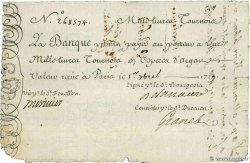 N.º 268574. Mille livres Tournois.
La Banque promet payer au porteur à vüe
Mille livres Tournois en Especes d'argent
Valeur reçue à Paris le 1er
Signé p.r le S.r Bourgeois
Vû p.r le S.r Fenellon.
Controllé p.r le S.r Durevest
Granet